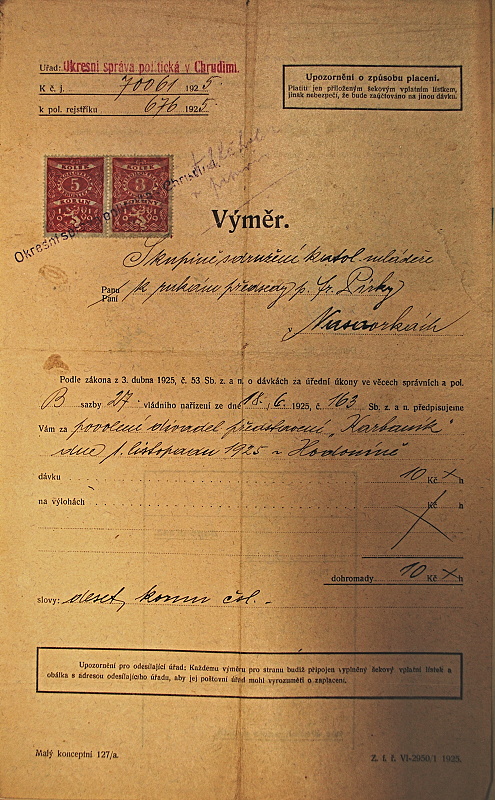 Úřad: Okresní správa politická v Chrudimi.
K č. j. 70061 1925
k pol. rejstříku 676 1925
Upozornění o způsobu placení.
Platiti jen přiloženým šekovým vplatním lístkem,
jinak nebezpečí, že bude zaúčtováno na jinou dávku.
KOLEK KOLEK
5 3
KORUN KORUNY
Výměr.
Skupině sdružení katol. mládeže
Panu k rukám předsedy p. Fr. Pirky
Paní
v
Podle zákona z 3. dubna 1925, č. 53 Sb. z. a n. o dávkách za úřední úkony ve věcech správních a pol.
B sazby 27. vládního nařízení ze dne 18. 6. 1925, č. 163 Sb. z. a n. předpisujeme
Vám za povolení divadel. představení „Karbaník"
dne 1. listopadu 1925 v Hodoníně
dávku 10 Kč × h
na výlohách Kč h
dohromady 10 Kč × h
slovy: deset korun čsl. -
Upozornění pro odesílající úřad: Každému výměru pro stranu budiž připojen vyplněný šekový vplatní lístek a
obálka s adresou odesílajícího úřadu, aby jej poštovní úřad mohl vyrozuměti o zaplacení.
Malý konceptní 127/a.
Z. f. ř. VI-2950/1 1925.